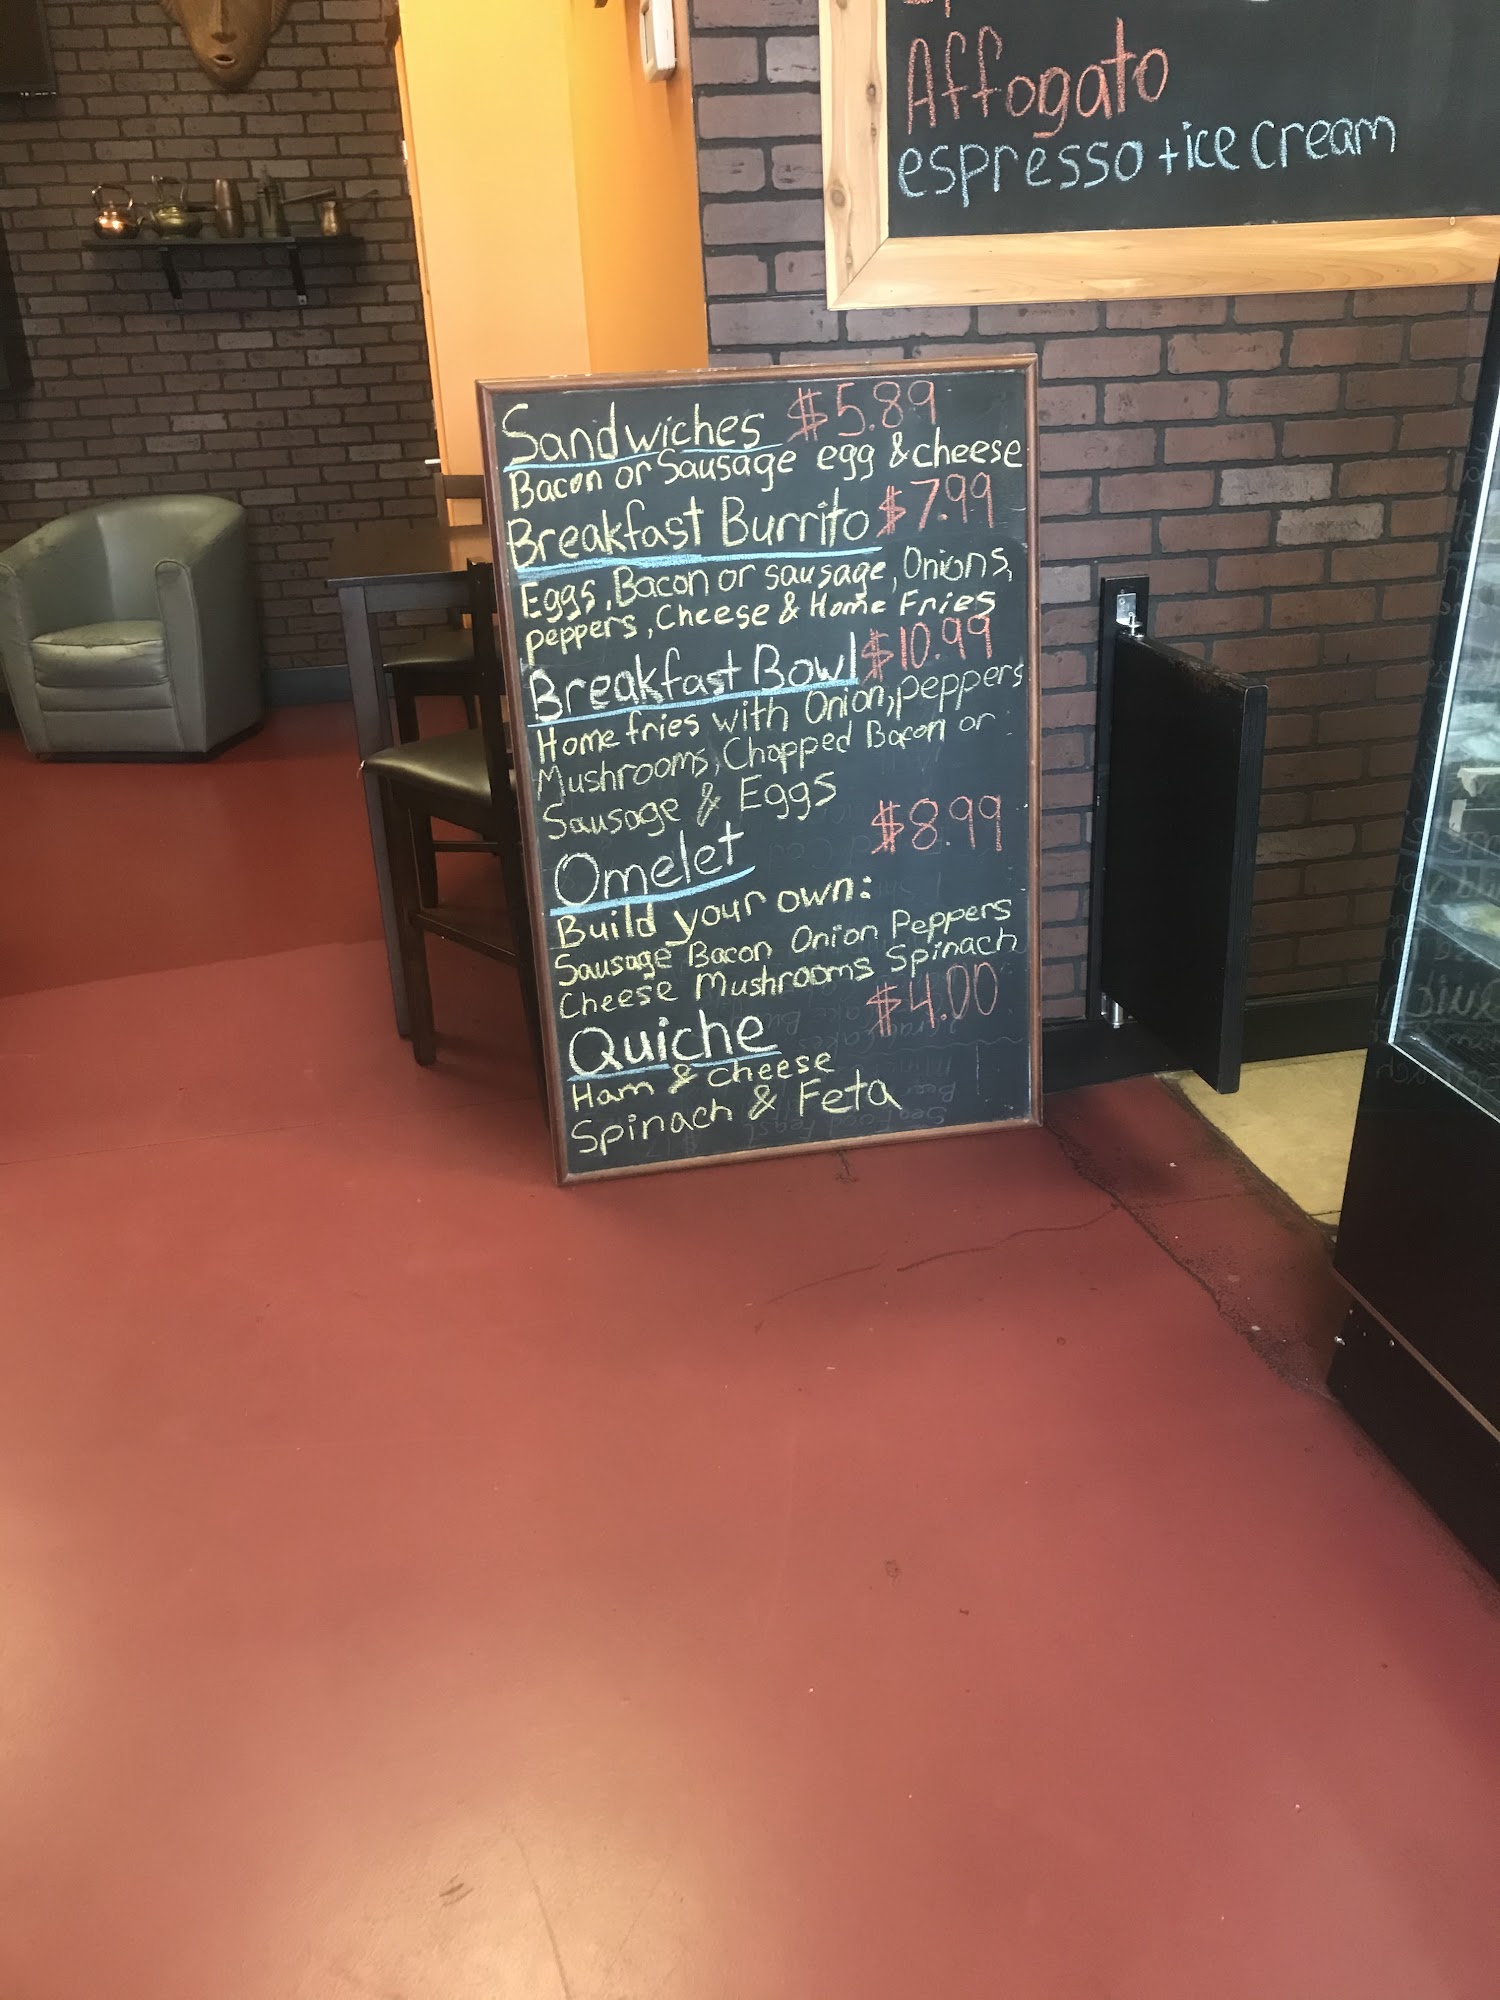 Affogato
espresso + ice cream
Sandwiches $5.89
Bacon or Sausage egg & cheese
Breakfast Burrito $7.99
Eggs, Bacon or sausage, Onions,
peppers, Cheese & Home Fries
Breakfast Bowl $10.99
Home fries with Onion, peppers
Mushrooms, Chopped Bacon or
Sausage & Eggs
Omelet $8.99
Build your own:
Sausage Bacon Onion Peppers
Cheese Mushrooms Spinach
Quiche $4.00
Ham & Cheese
Spinach & Feta